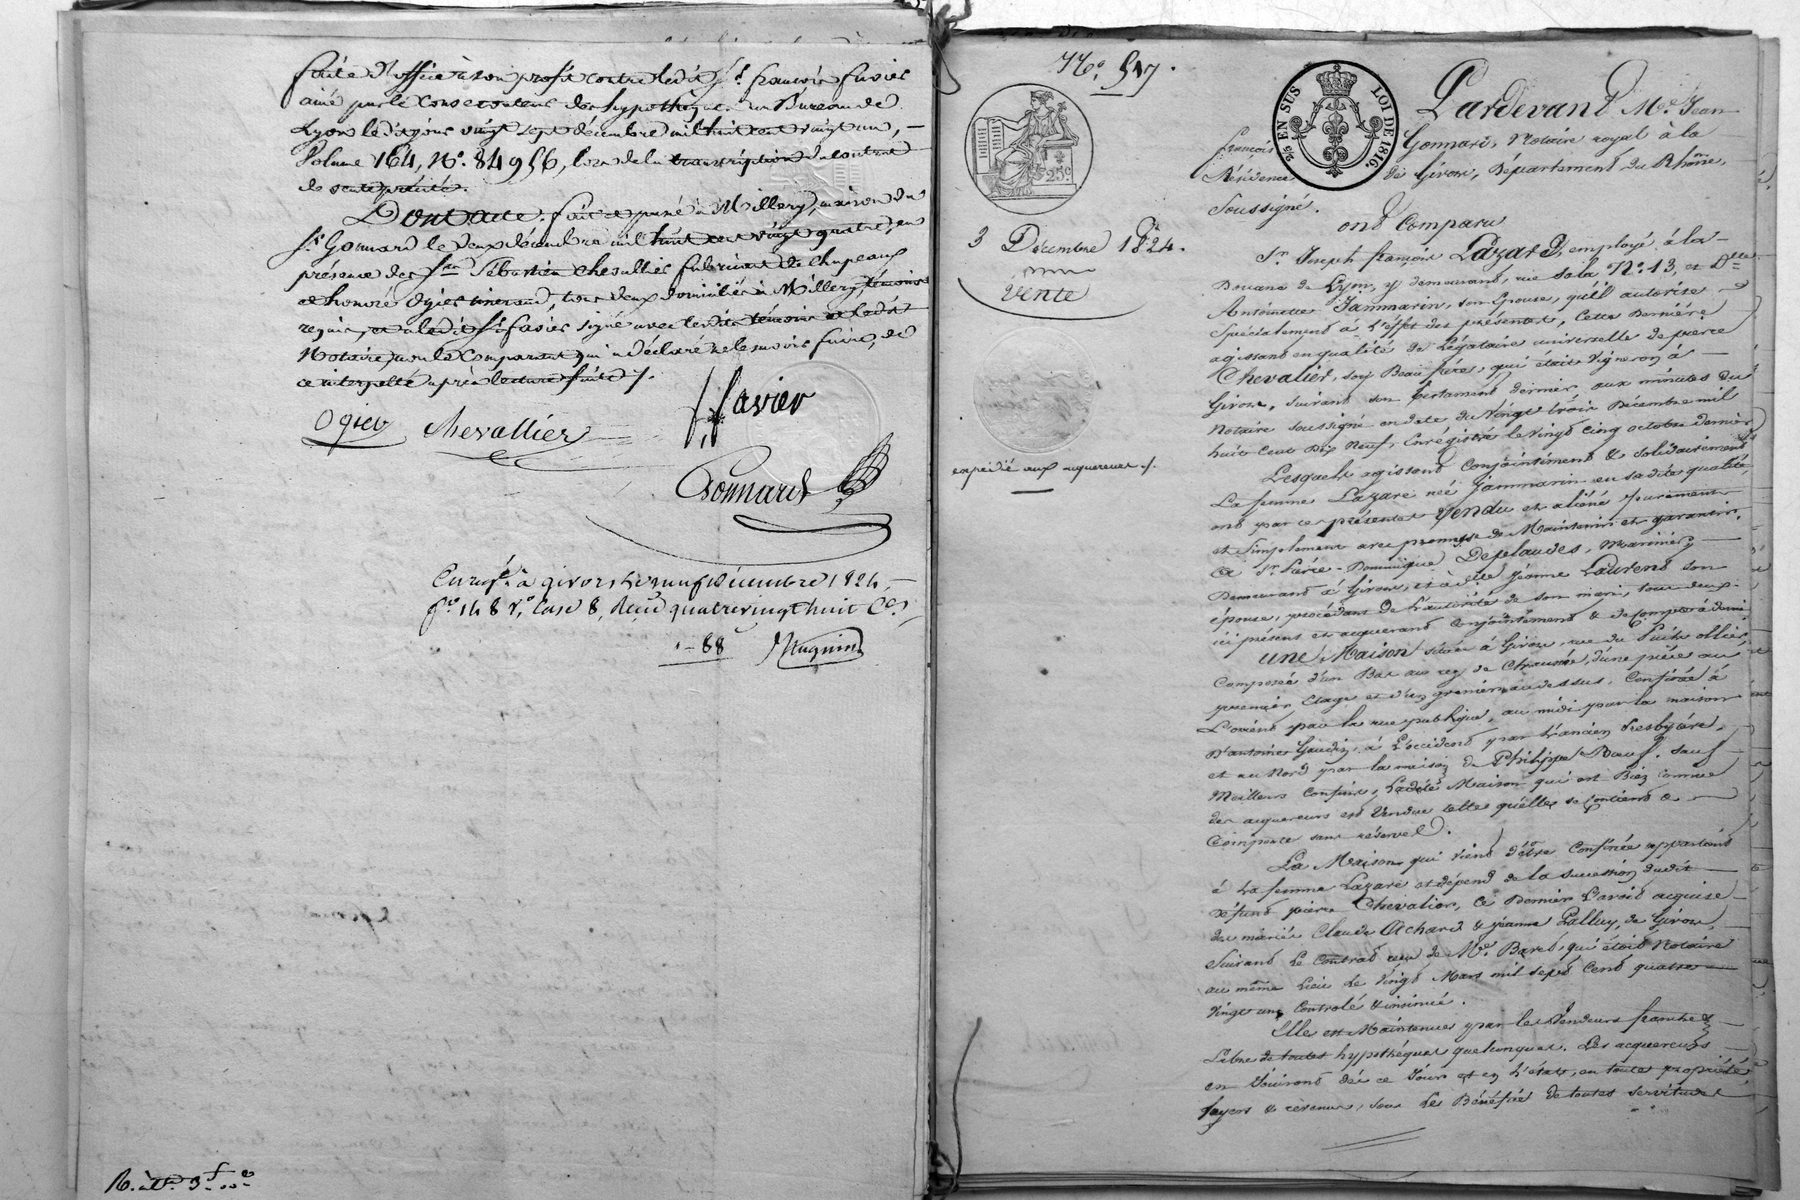 faite d'office à son profit contre ledit Sr. françois favier
ainé par le conservateur des hypothèques du Bureau de
Lyon ledit jour vingt sept décembre mil huit cent vingt un,
Volume 164, No. 84956, lors de la transcription du contrat
de vente précité.
Dont acte. fait et passé à Millery, maison du
Sr. Gonnard le deux décembre mil huit cent vingt quatre, en
présence des Srs Sébastien Chevallier fabricant de chapeaux
et honoré Ogier tisserand, tous deux domiciliés à Millery témoins
requis, et a ledit Sr. favier signé avec lesdits témoins et ledit
Notaire, non le Comparant qui a déclaré ne le savoir faire, de
ce interpellé après lecture faite /.
Ogier Chevallier
ff favier
Gonnard
Enregé. à givors le neuf décembre 1824,
fo. 148 Vo. Case 8, Reçu quatrevingt huit Ces.
88
R. 3f
No. 517.
25c
3 Décembre 1824.
Vente
expédié aux acquereurs /.
25 EN SUS
LOI DE 1816.
Pardevant Me. Jean
françois Gonnard, Notaire royal à la
Résidence de Givors, Département du Rhône,
Soussigné.
ont Comparu
Sr. Joseph françois Lazare, employé à la
Douane de Lyon, y demeurant, rue Sala No. 13, et Dlle
Antoinette Jammarin, son Epouse, qu'il autorise
Spécialement à l'effet des présentes, Cette Dernière
agissant en qualité de Légataire universelle de pierre
Chevalier, son Beau frère, qui étoit Vigneron à
Givors, suivant son testament dernier aux minutes du
Notaire soussigné en date du Vingt trois Décembre mil
huit Cent Dix Neuf, Enrégistré le Vingt cinq octobre dernier
Lesquels agissant Conjointement & solidairement
La femme Lazare née Jammarin en sadite qualité,
ont par ces présentes Vendu et aliéné purement
et Simplement avec promesse de Maintenir et garantir,
à Sr. Pierre-Dominique Desplaudes, Marinier
Demeurant à Givors, et à dlle Jeanne Laurent son
épouse, procédant de l'autorité de son mari, tous deux
ici présens et acquerant Conjointement & de Compte à demi
une Maison située à Givors, rue du Puits ollier,
Composée d'un Bas au rez de Chaussée, d'une pièce au
premier Etage et d'un grenier au dessus, Confinée à
L'orient par la rue publique, au midi par la maison
d'antoine Gaudin, à L'occident par L'ancien Presbytère,
et au Nord par la maison de Philippe Bœuf, sauf
Meilleurs Confins, Ladite Maison qui est Bien connue
des acquereurs est Vendue telle qu'elle se Contient &
Comporte sans réserve.
La Maison qui vient d'être Confinée appartient
à La femme Lazare et dépend de la succession dudit
défunt pierre Chevalier, Ce Dernier L'avoit acquise
des mariés Claude Achard & jeanne Palluy, de Givors,
Suivant Le Contrat reçu de Me. Baret, qui étoit Notaire
au même Lieu Le Vingt Mars mil sept Cent quatre
Vingt un, Controlé & insinué.
Elle est Maintenue par les Vendeurs franche &
Libre de toutes hypothéques quelconques. Les acquereurs
en Jouiront dès ce Jour et en L'état, en toute propriété,
Loyers & revenus, sous Le Bénéfice de toutes servitudes